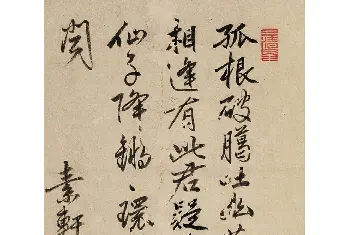 孤根破臘吐幽
相逢有此君疑
仙子降鏘〻環
関
素軒